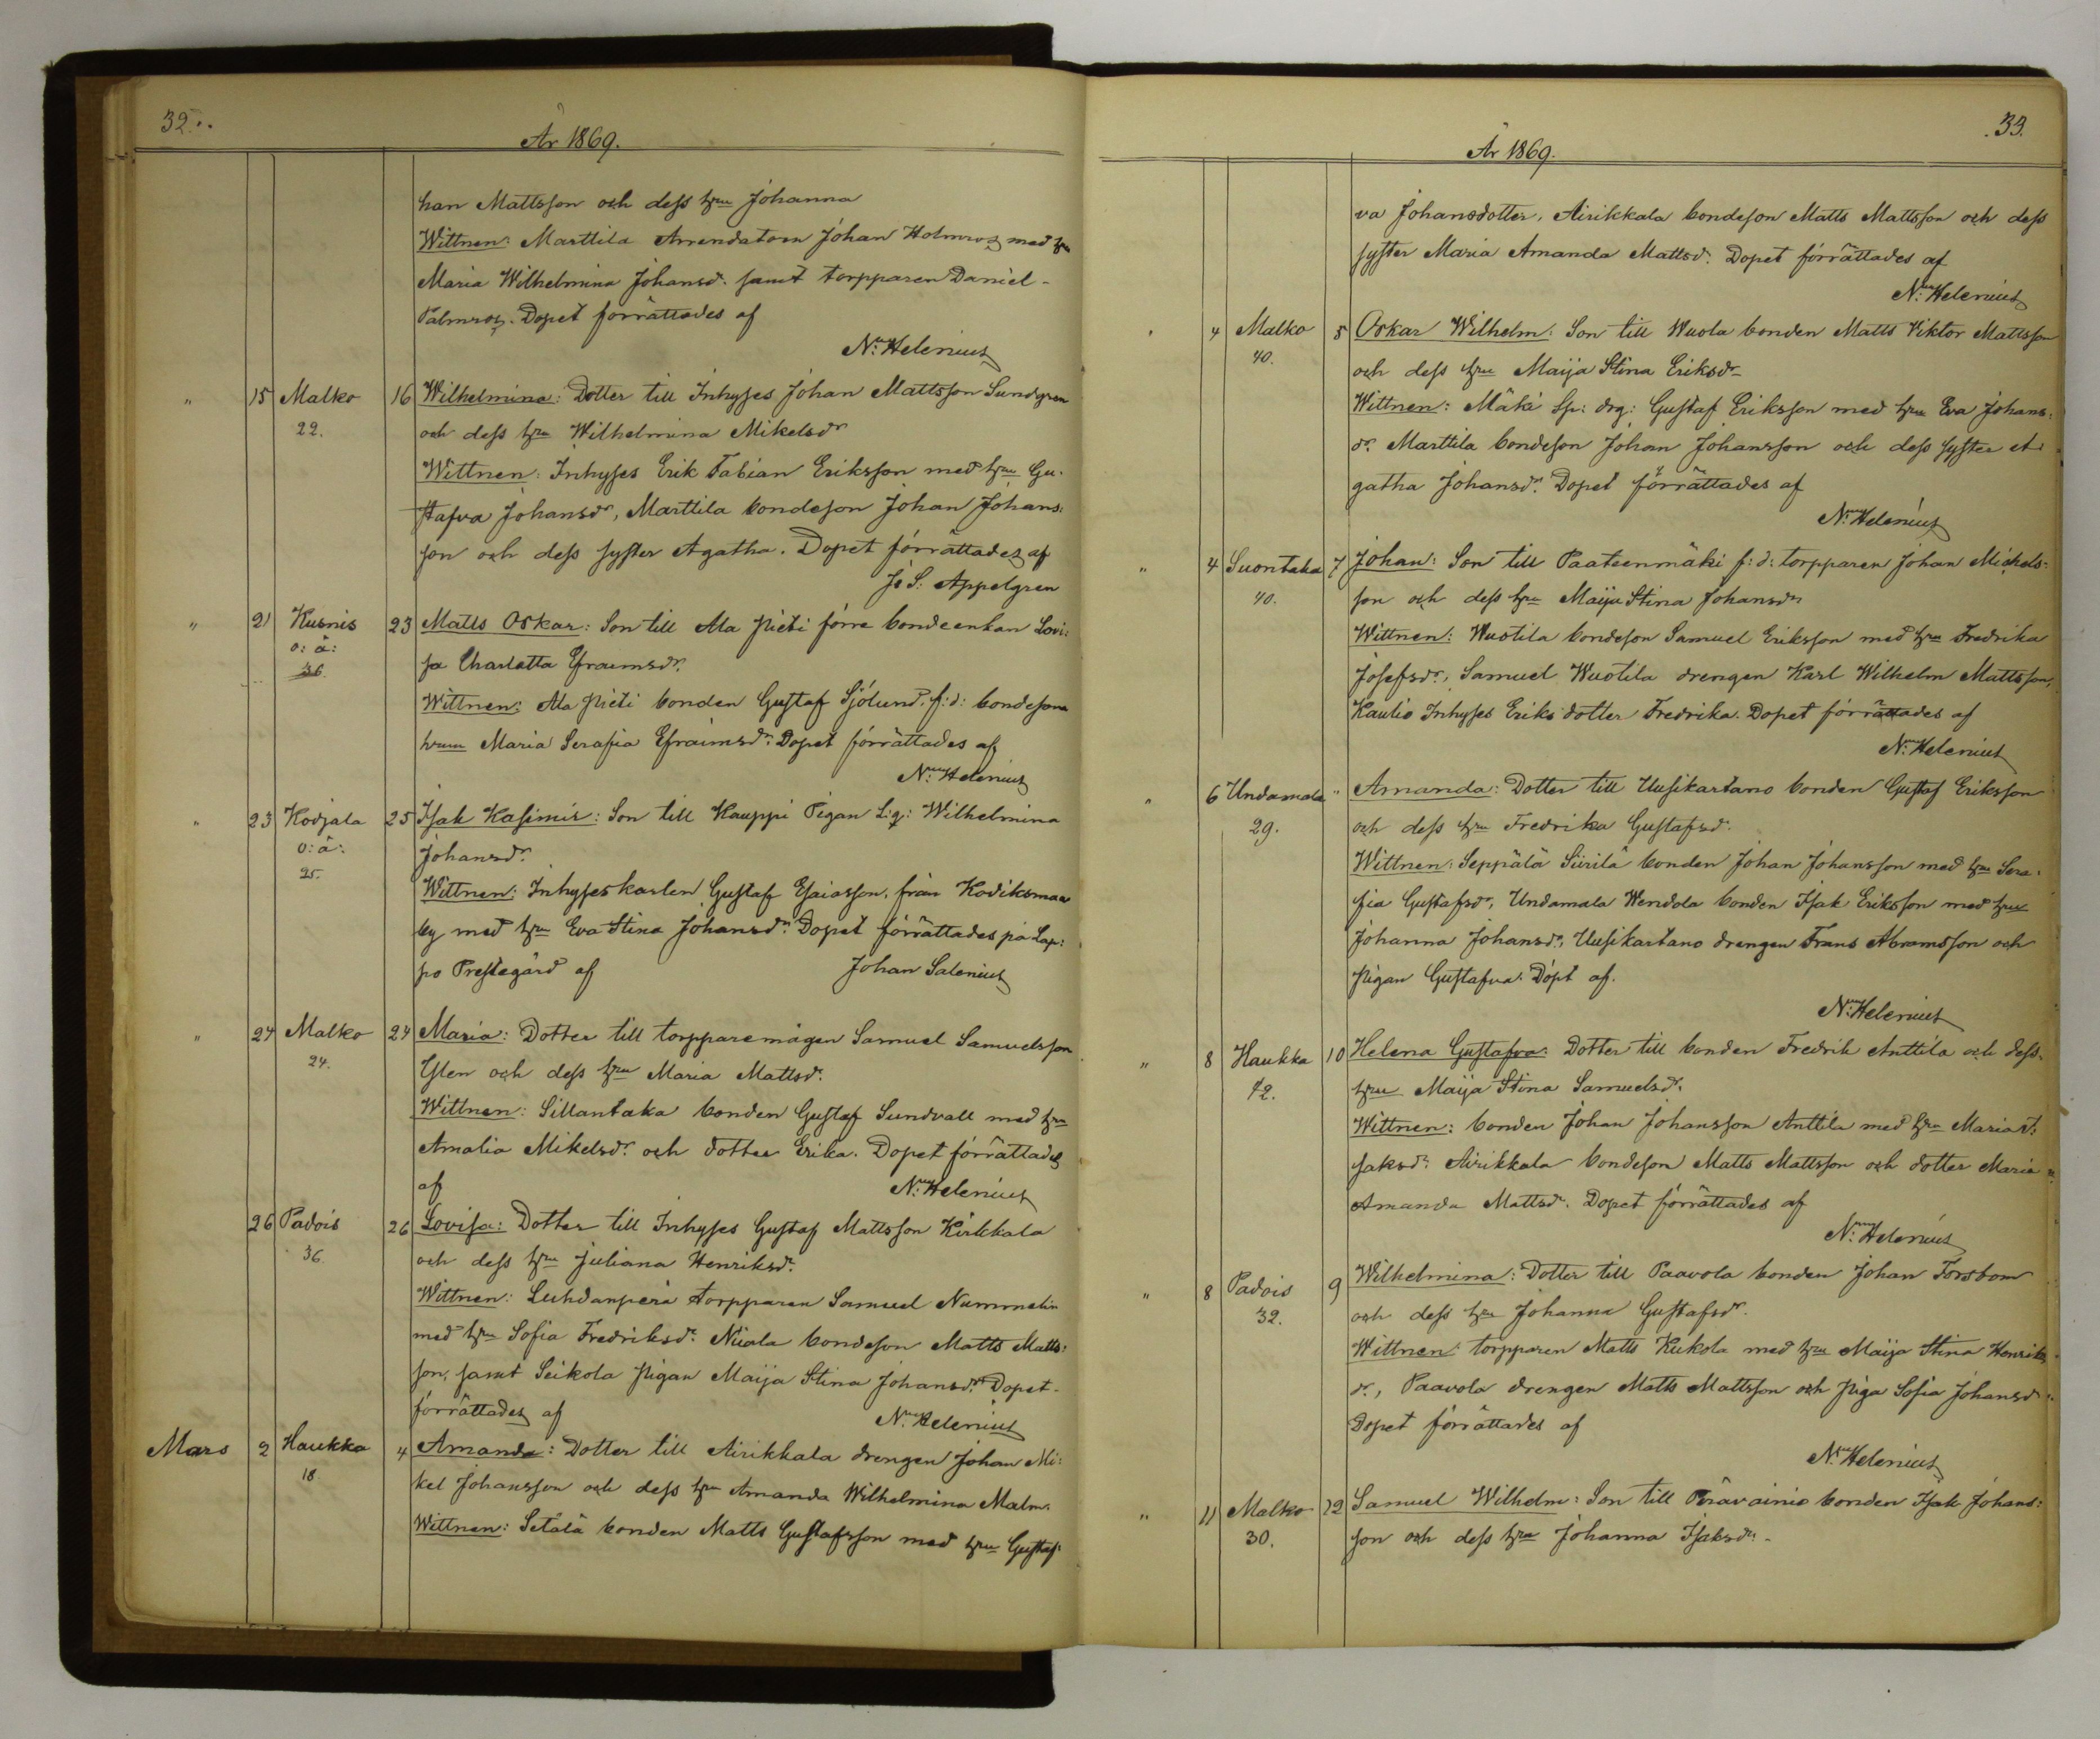 32.
År 1869.
han Mattsson och dess hru Johanna
Wittnen: Marttila Arrendatorn Johan Holmros med hru
Maria Wilhelmina Johansdr. samt torpparen Daniel
Palmros. Dopet förrättades af
N: Helenius
" 15 Malko 16 Wilhelmina: Dotter till Inhyses Johan Mattsson Sundgren
22. och dess hru Wilhelmina Mikelsdr
Wittnen: Inhyses Erik Fabian Eriksson med hru Gu-
stafva Johansdr, Marttila bondeson Johan Johans:
son och dess syster Agatha. Dopet förrättades af
J: S: Appelgren
" 21 Kusnis 23 Matts Oskar: Son till Ala Pieti förre bondeenkan Lovi:
o: å: sa Charlotta Efraimsdr.
36.
Wittnen: Ala Pieti bonden Gustaf Sjölund, f: d: bondesons
hrun Maria Serafia Efraimsdr. Dopet förrättades af
N: Helenius
" 23 Kodjala 25 Isak Kasimir: Son till Kauppi Pigan L: q: Wilhelmina
o: ä: Johansdr.
25. Wittnen: Inhyseskarlen Gustaf Esaiasson, från Kodiksmaa
by med hru Eva Stina Johansdr. Dopet förrättades på Lap:
po Prestegård af Johan Salenius
" 24 Malko 24 Maria: Dotter till torpparemågen Samuel Samuelsson
24. Ylen och dess hru Maria Mattsdr.
Wittnen: Sillantaka bonden Gustaf Sundvall med hru
Amalia Mikelsdr. och dotter Erika. Dopet förrättades
af N: Helenius
26 Padois 26 Lovisa: Dotter till Inhyses Gustaf Mattsson Kirkkala
36. och dess hru Juliana Henriksdr.
Wittnen: Luhdanperä torpparen Samuel Nummelin
med hru Sofia Fredriksdr. Niiala bondeson Matts Matts:
son, samt Seikola pigan Maija Stina Johansdr. Dopet
förrättades af N: Helenius
Mars 2 Haukka 4 Amanda: Dotter till Airikkala drengen Johan Mi:
18. kel Johansson och dess hru Amanda Wilhelmina Malm.
Wittnen: Setälä bonden Matts Gustafsson med hru Gustaf:
33.
År 1869.
va Johansdotter, Airikkala bondeson Matts Mattsson och dess
syster Maria Amanda Mattsdr. Dopet förrättades af
N: Helenius
" 4 Malko 5 Oskar Wilhelm: Son till Wuola bonden Matts Viktor Mattsson
40. och dess hru Maija Stina Eriksdr
Wittnen: Mäki Sp: drg: Gustaf Eriksson med hru Eva Johans:
dr. Marttila bondeson Johan Johansson och dess syster A-
gatha Johansdr. Dopet förrättades af
N: Helenius
" 4 Suontaka 7 Johan: Son till Paateenmäki f: d: torpparen Johan Mickels:
40. son och dess hru Maija Stina Johansdr
Wittnen: Wuotila bondeson Samuel Eriksson med hru Fredrika
Josefsdr, Samuel Wuotila drengen Karl Wilhelm Mattsson,
Kautio Inhyses Eriks dotter Fredrika. Dopet förrättades af
N: Helenius
" 6 Undamala " Amanda: Dotter till Uusikartano bonden Gustaf Eriksson
29. och dess hru Fredrika Gustafsdr.
Wittnen: Seppälä Siirilä bonden Johan Johansson med hru Sera-
fia Gustafsdr, Undamala Wendola bonden Isak Eriksson med hru
Johanna Johansdr, Uusikartano drengen Frans Abramsson och
pigan Gustafva. Döpt af.
N: Helenius
" 8 Haukka 10 Helena Gustafva: Dotter till bonden Fredrik Anttila och dess
12. hru Maija Stina Samuelsdr.
Wittnen: bonden Johan Johansson Anttila med hru Maria I:
saksdr. Airikkala bondeson Matts Mattsson och dotter Maria
Amanda Mattsdr. Dopet förrättades af
N: Helenius
" 8 Padois 9 Wilhelmina: Dotter till Paavola bonden Johan Forsbom
32. och dess hru Johanna Gustafsdr.
Wittnen: torpparen Matts Kukola med hru Maija Stina Henriks
dr., Paavola drengen Matts Mattsson och piga Sofia Johansdr.
Dopet förrättades af
N: Helenius
" 11 Malko 12 Samuel Wilhelm: Son till Perävainio bonden Isak Johans:
30. son och dess hru Johanna Isaksdr.